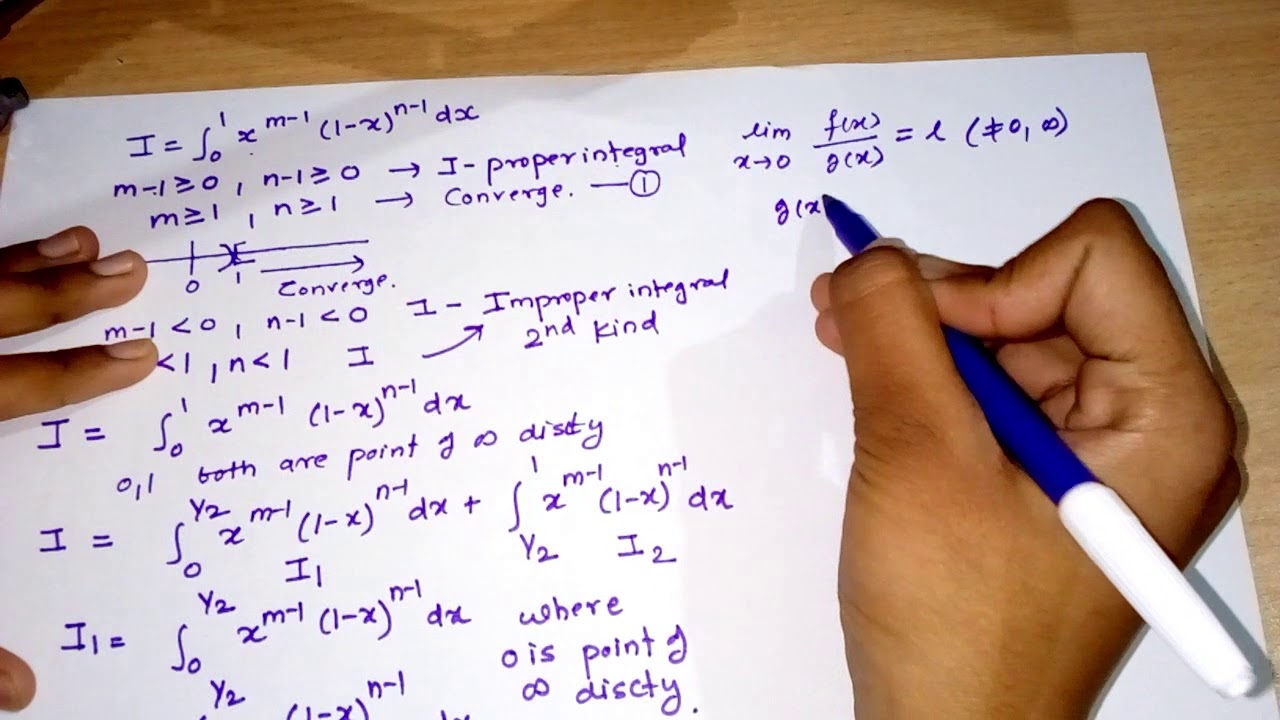 I = ∫₀¹ x^(m-1) (1-x)^(n-1) dx
m-1 ≥ 0 , n-1 ≥ 0 → I - proper integral
m ≥ 1 , n ≥ 1 → Converge. —①
0 1 Converge.
m-1 < 0 , n-1 < 0 I - Improper integral
2nd Kind
<1 , n < 1 I
I = ∫₀¹ x^(m-1) (1-x)^(n-1) dx
0,1 both are point of ∞ discty
I = ∫₀^(1/2) x^(m-1) (1-x)^(n-1) dx + ∫_(1/2)^1 x^(m-1) (1-x)^(n-1) dx
I₁ I₂
I₁ = ∫₀^(1/2) x^(m-1) (1-x)^(n-1) dx where
0 is point of
∞ discty.
1/2 (1-x)^(n-1) dx
lim x→0 f(x)/g(x) = l (≠0, ∞)
g(x